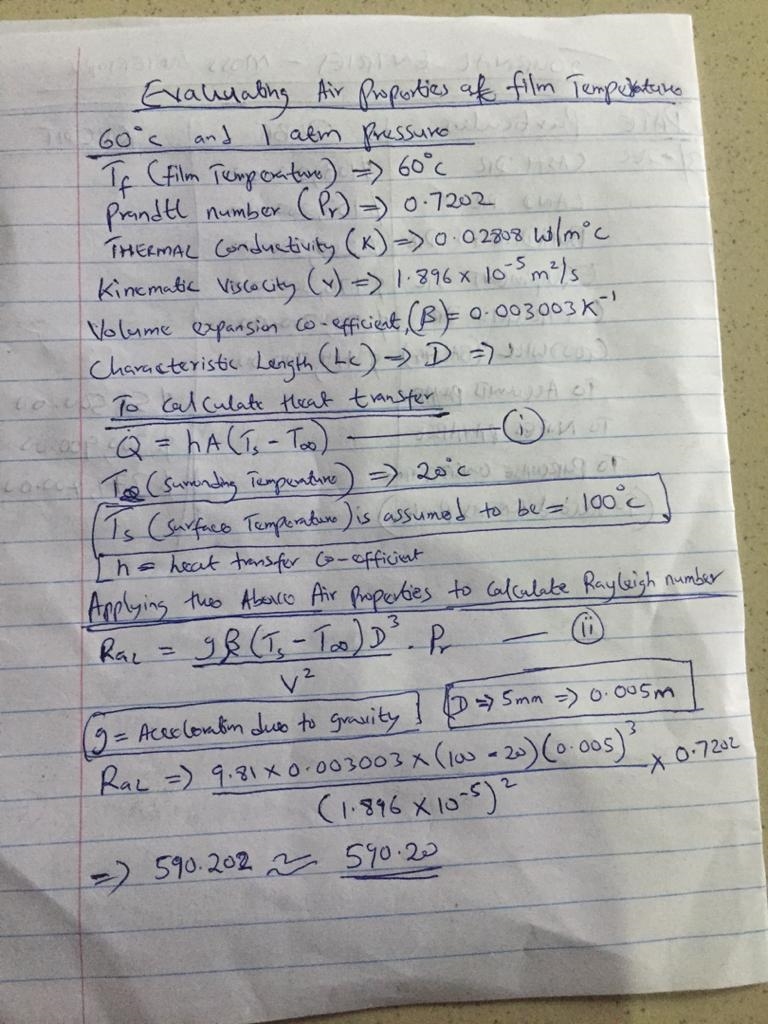 Evaluating Air Properties at film Temperature
60°c and 1 atm pressure
Tf (film Temperature) => 60°c
Prandtl number (Pr) => 0.7202
THERMAL Conductivity (K) => 0.02808 W/m°c
Kinematic Viscocity (v) => 1.896 x 10⁻⁵ m²/s
Volume expansion co-efficient, (β) = 0.003003 K⁻¹
Characteristic Length (Lc) => D =>
To Calculate Heat transfer
Q̇ = hA(Ts - T∞) — (i)
T∞ (surrounding Temperature) => 20°c
Ts (surface Temperature) is assumed to be = 100°c
h = heat transfer co-efficient
Applying the Above Air Properties to Calculate Rayleigh number
RaL = gβ(Ts - T∞)D³ / V² . Pr — (ii)
g = Acceleration due to gravity D => 5mm => 0.005m
RaL => 9.81 x 0.003003 x (100 - 20)(0.005)³ / (1.896 x 10⁻⁵)² x 0.7202
=> 590.202 ≈ 590.20